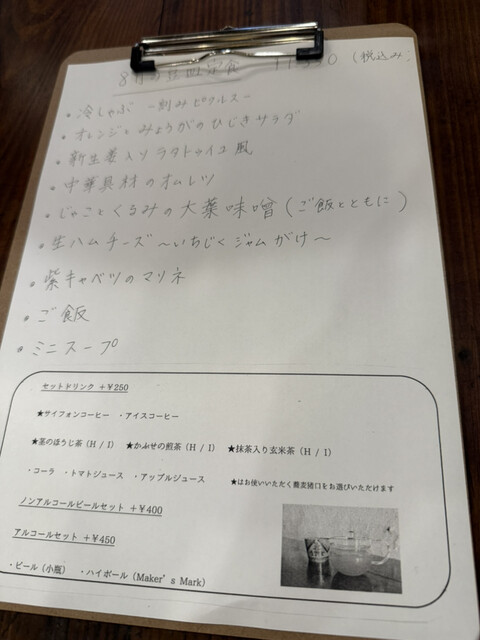 8月の昼 定食 (税込み)
・冷しゃぶ ー刻みピクルスー
・オレンジとみょうがのひじきサラダ
・新生姜入りラタトゥイユ風
・中華具材のオムレツ
・じゃことくるみの大葉味噌(ご飯とともに)
・生ハムチーズ〜いちじくジャムがけ〜
・紫キャベツのマリネ
・ご飯
・ミニスープ
セットドリンク +¥250
★サイフォンコーヒー ・アイスコーヒー
★茎のほうじ茶(H / I) ★かぶせの煎茶(H / I) ★抹茶入り玄米茶(H / I)
・コーラ ・トマトジュース ・アップルジュース ★はお使いいただく蕎麦猪口をお選びいただけます
ノンアルコールビールセット +¥400
アルコールセット +¥450
・ビール(小瓶) ・ハイボール(Maker's Mark)